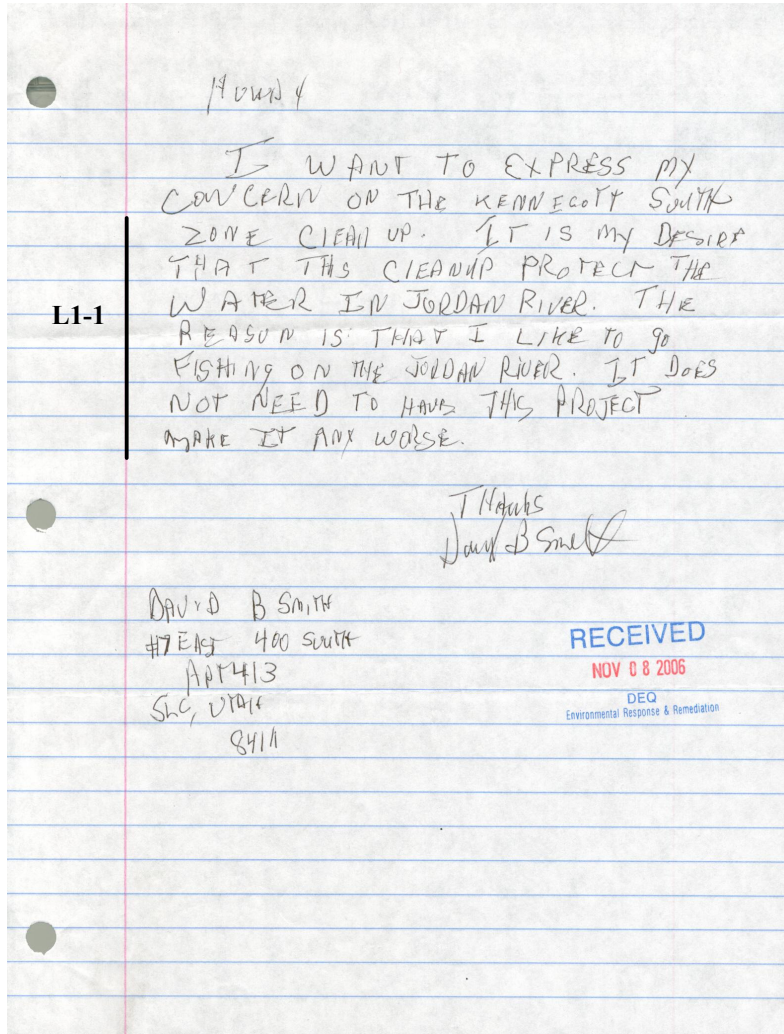 I WANT TO EXPRESS MY
CONCERN ON THE KENNECOTT SOUTH
ZONE CLEAN UP. IT IS MY DESIRE
THAT THS CLEANUP PROTECT THE
L1-1
WATER IN JORDAN RIVER. THE
REASON IS THAT I LIKE TO go
FISHING ON THE JORDAN RIVER. IT DOES
NOT NEED TO HAVE THIS PROJECT
MAKE IT ANY WORSE.
THANKS
DAVID B SMITH
#7 EAST 400 SOUTH
APT 413
SLC, UTAH
8411
RECEIVED
NOV 08 2006
DEQ
Environmental Response & Remediation